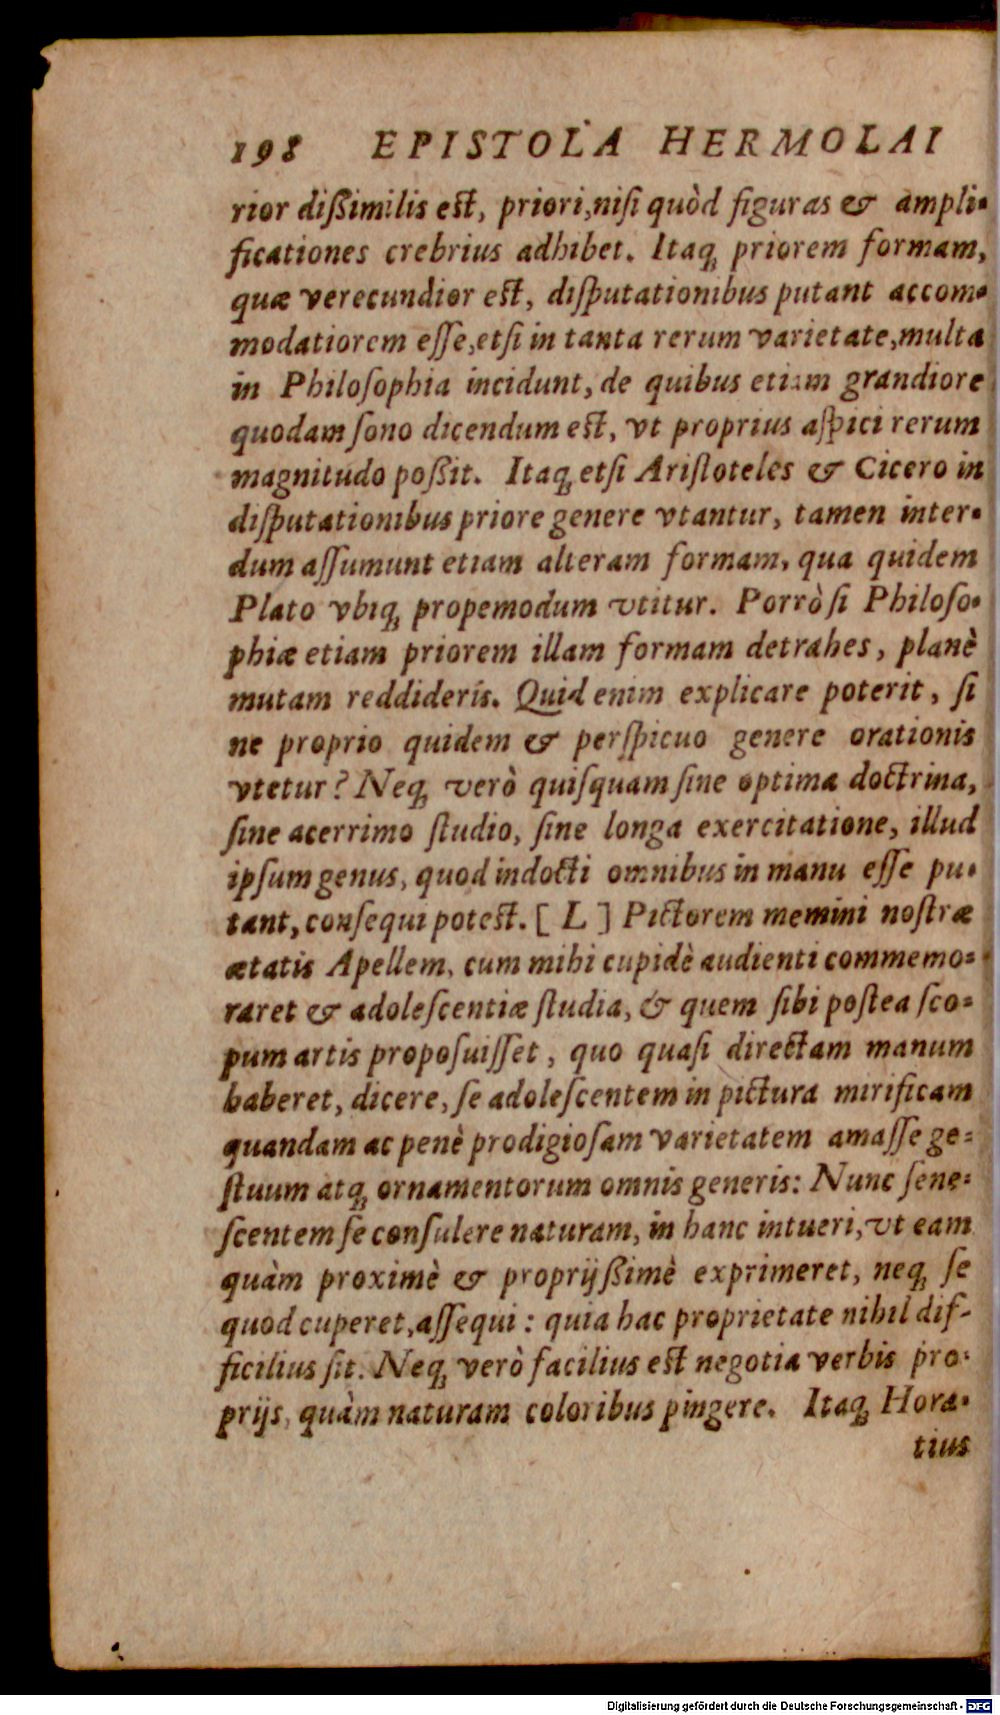 198 EPISTOLA HERMOLAI
rior dißimilis est, priori, niſi quòd figuras & ampli-
ficationes crebrius adhibet. Itaq; priorem formam,
quæ verecundior est, diſputationibus putant accom-
modatiorem eſſe, etſi in tanta rerum varietate, multa
in Philoſophia incidunt, de quibus etiam grandiore
quodam ſono dicendum est, vt proprius aſpici rerum
magnitudo poßit. Itaq; etſi Ariſtoteles & Cicero in
diſputationibus priore genere vtantur, tamen inter-
dum aſſumunt etiam alteram formam, qua quidem
Plato vbiq; propemodum vtitur. Porrò ſi Philoſo-
phiæ etiam priorem illam formam detrahes, planè
mutam reddideris. Quid enim explicare poterit, ſi
ne proprio quidem & perſpicuo genere orationis
vtetur? Neq; verò quiſquam ſine optima doctrina,
ſine acerrimo ſtudio, ſine longa exercitatione, illud
ipſum genus, quod indocti omnibus in manu eſſe pu-
tant, conſequi potest. [ L ] Pictorem memini noſtræ
ætatis Apellem, cum mihi cupidè audienti commemo-
raret & adoleſcentiæ ſtudia, & quem ſibi poſtea ſco-
pum artis propoſuiſſet, quo quaſi directam manum
haberet, dicere, ſe adoleſcentem in pictura mirificam
quandam ac penè prodigioſam varietatem amaſſe ge-
ſtuum atq; ornamentorum omnis generis: Nunc ſene-
ſcentem ſe conſulere naturam, in hanc intueri, vt eam
quàm proximè & proprijßimè exprimeret, neq; ſe
quod cuperet, aſſequi: quia hac proprietate nihil dif-
ficilius ſit. Neq; verò facilius est negotia verbis pro-
prijs, quàm naturam coloribus pingere. Itaq; Hora-
tius
Digitalisierung gefördert durch die Deutsche Forschungsgemeinschaft - DFG